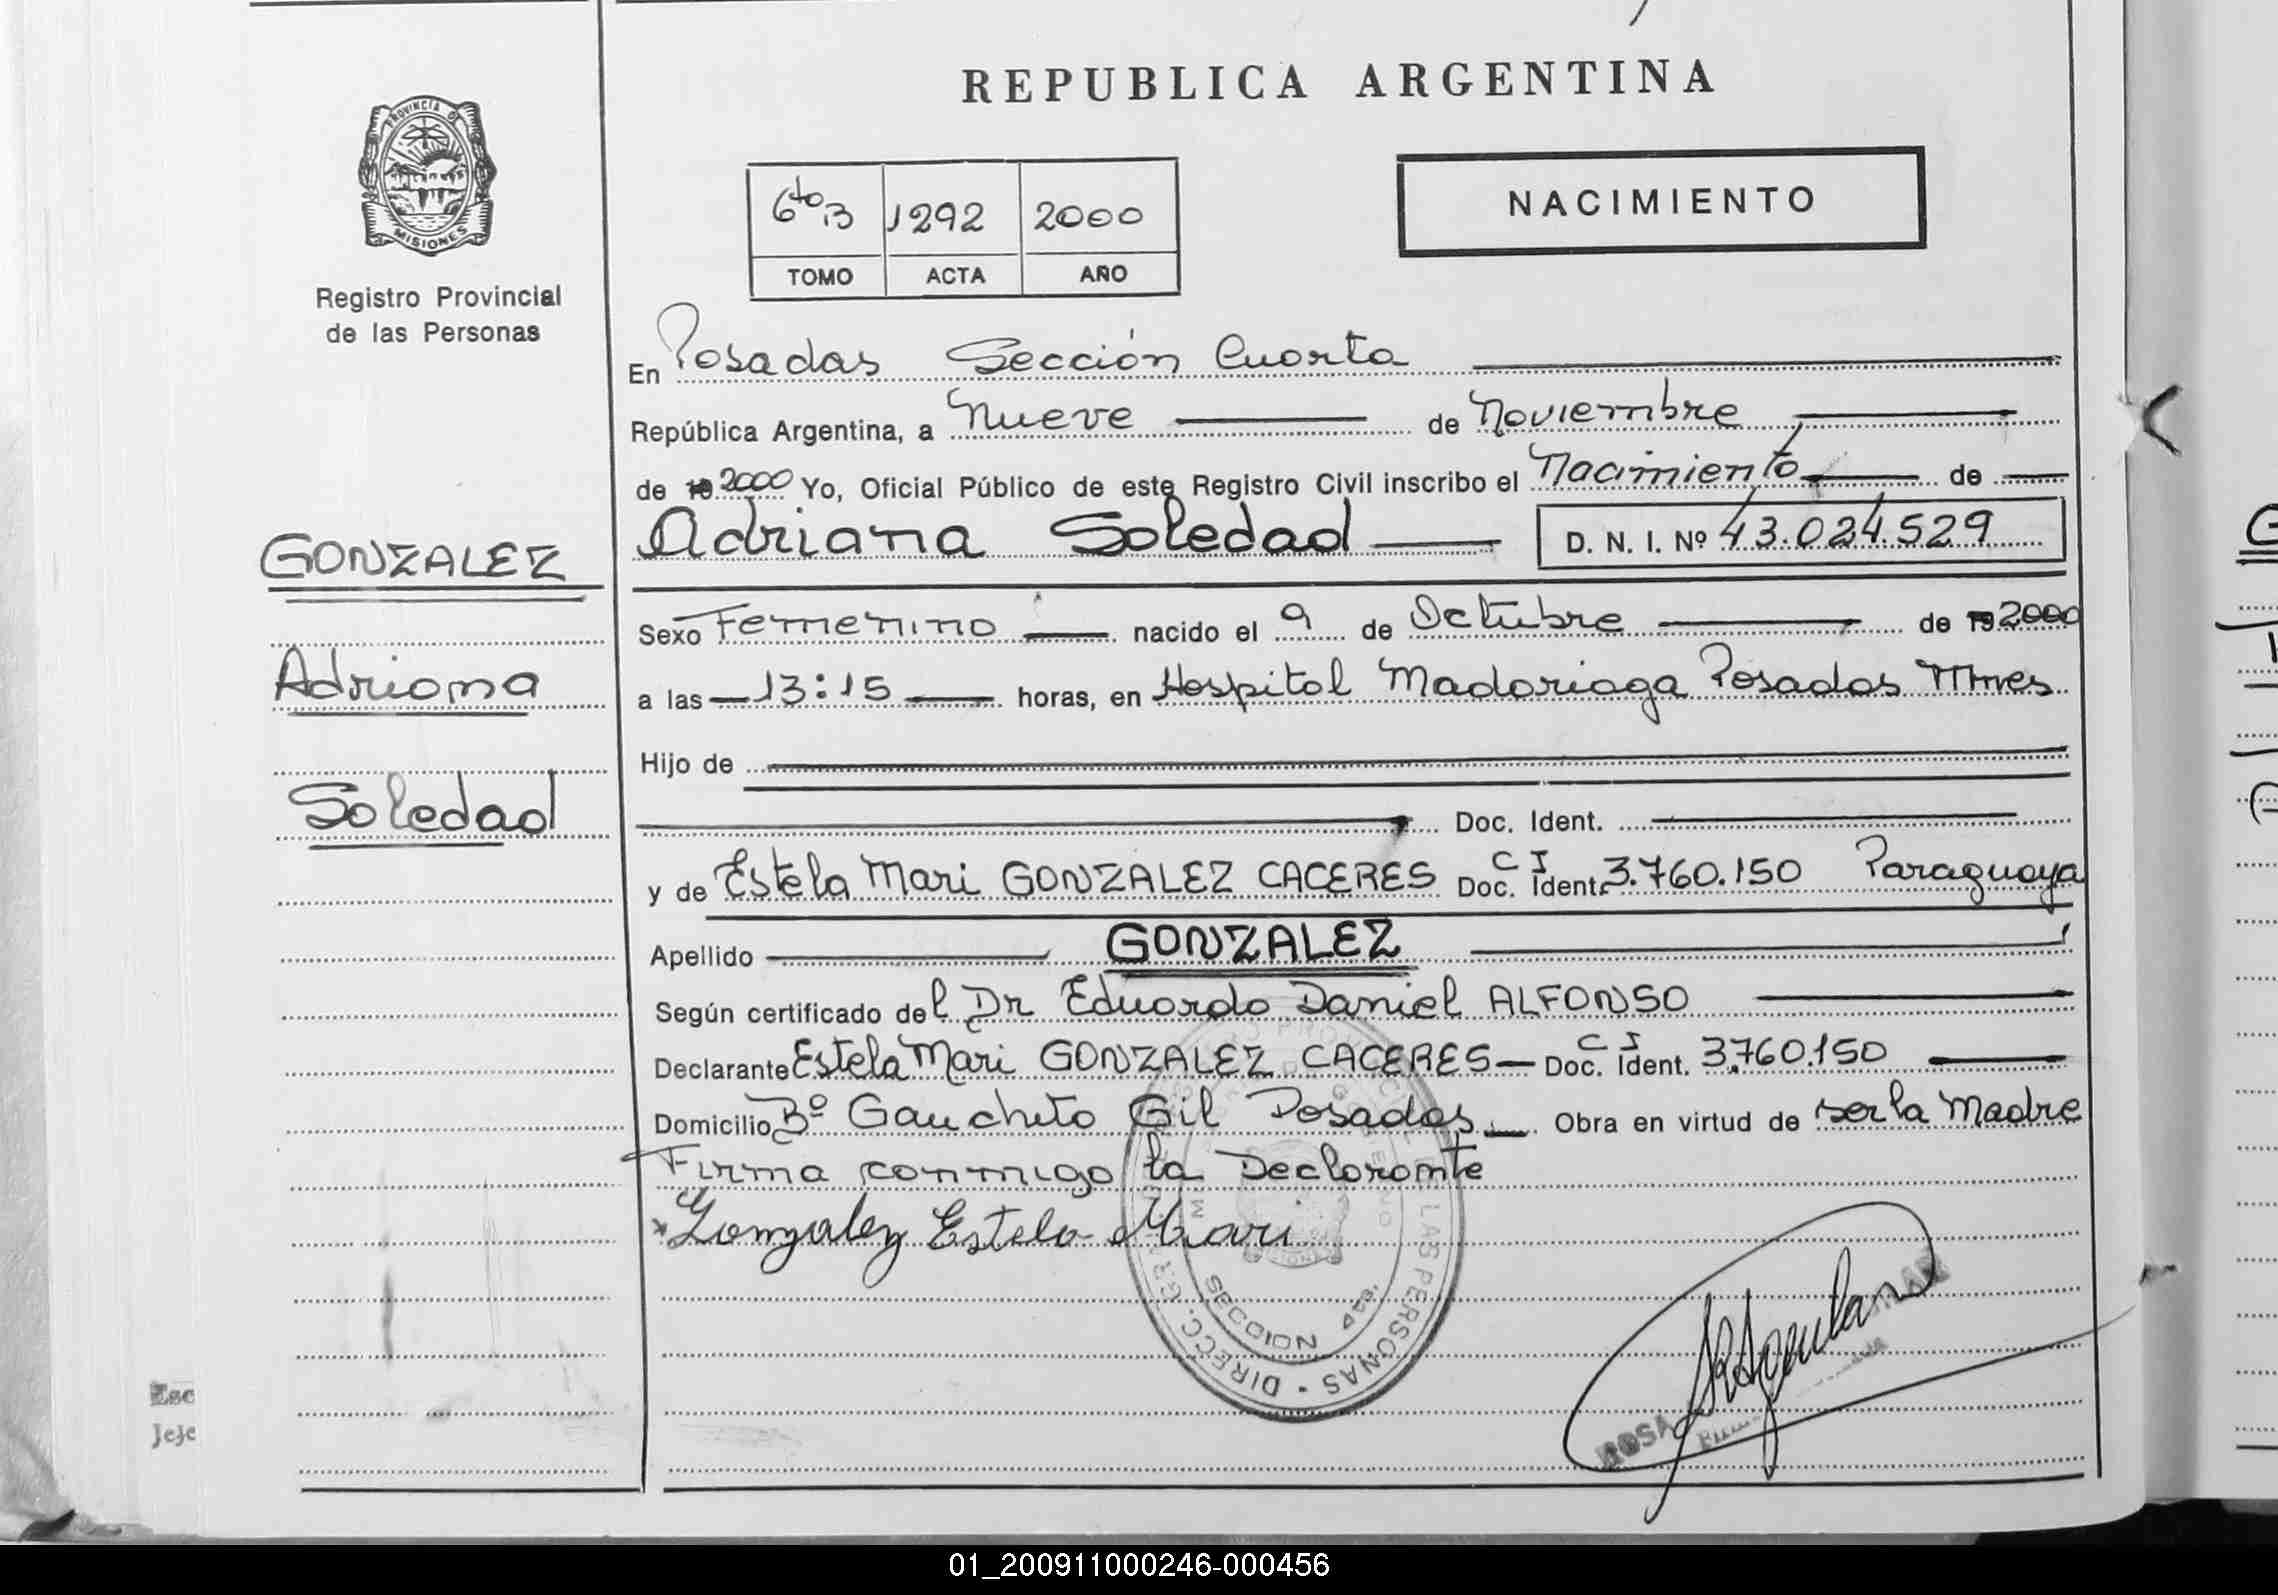 REPUBLICA ARGENTINA
PROVINCIA DE
MISIONES
Registro Provincial
de las Personas
6to B 1292 2000
TOMO ACTA AÑO
NACIMIENTO
En Posadas Sección Cuarta
República Argentina, a Nueve de Noviembre
de 19 2000 Yo, Oficial Público de este Registro Civil inscribo el Nacimiento de
Adriana Soledad D. N. I. Nº 43.024.529
GONZALEZ
Adriana
Soledad
Sexo Femenino nacido el 9 de Octubre de 19 2000
a las 13:15 horas, en Hospital Madariaga Posadas Mnes
Hijo de
Doc. Ident.
y de Estela Mari GONZALEZ CACERES Doc. Ident. C I 3.760.150 Paraguaya
Apellido GONZALEZ
Según certificado del Dr Eduardo Daniel ALFONSO
Declarante Estela Mari GONZALEZ CACERES Doc. Ident. C I 3.760.150
Domicilio Bº Gauchito Gil Posadas Obra en virtud de ser la Madre
Firma conmigo la Declarante
Gonzalez Estela Mari
DE LAS PERSONAS • DIRECC. GR
SECCION 4ta.
ROSA
Esc
Jeje
01_200911000246-000456